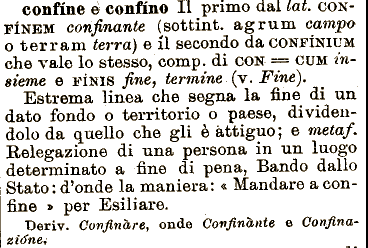 confíne e confíno Il primo dal lat. CON-
FÍNEM confinante (sottint. agrum campo
o terram terra) e il secondo da CONFÍNIUM
che vale lo stesso, comp. di CON = CUM in-
sieme e FÍNIS fine, termine (v. Fine).
Estrema linea che segna la fine di un
dato fondo o territorio o paese, dividen-
dolo da quello che gli è attiguo; e metaf.
Relegazione di una persona in un luogo
determinato a fine di pena, Bando dallo
Stato: d'onde la maniera: « Mandare a con-
fine » per Esiliare.
Deriv. Confinàre, onde Confinànte e Confina-
zióne.